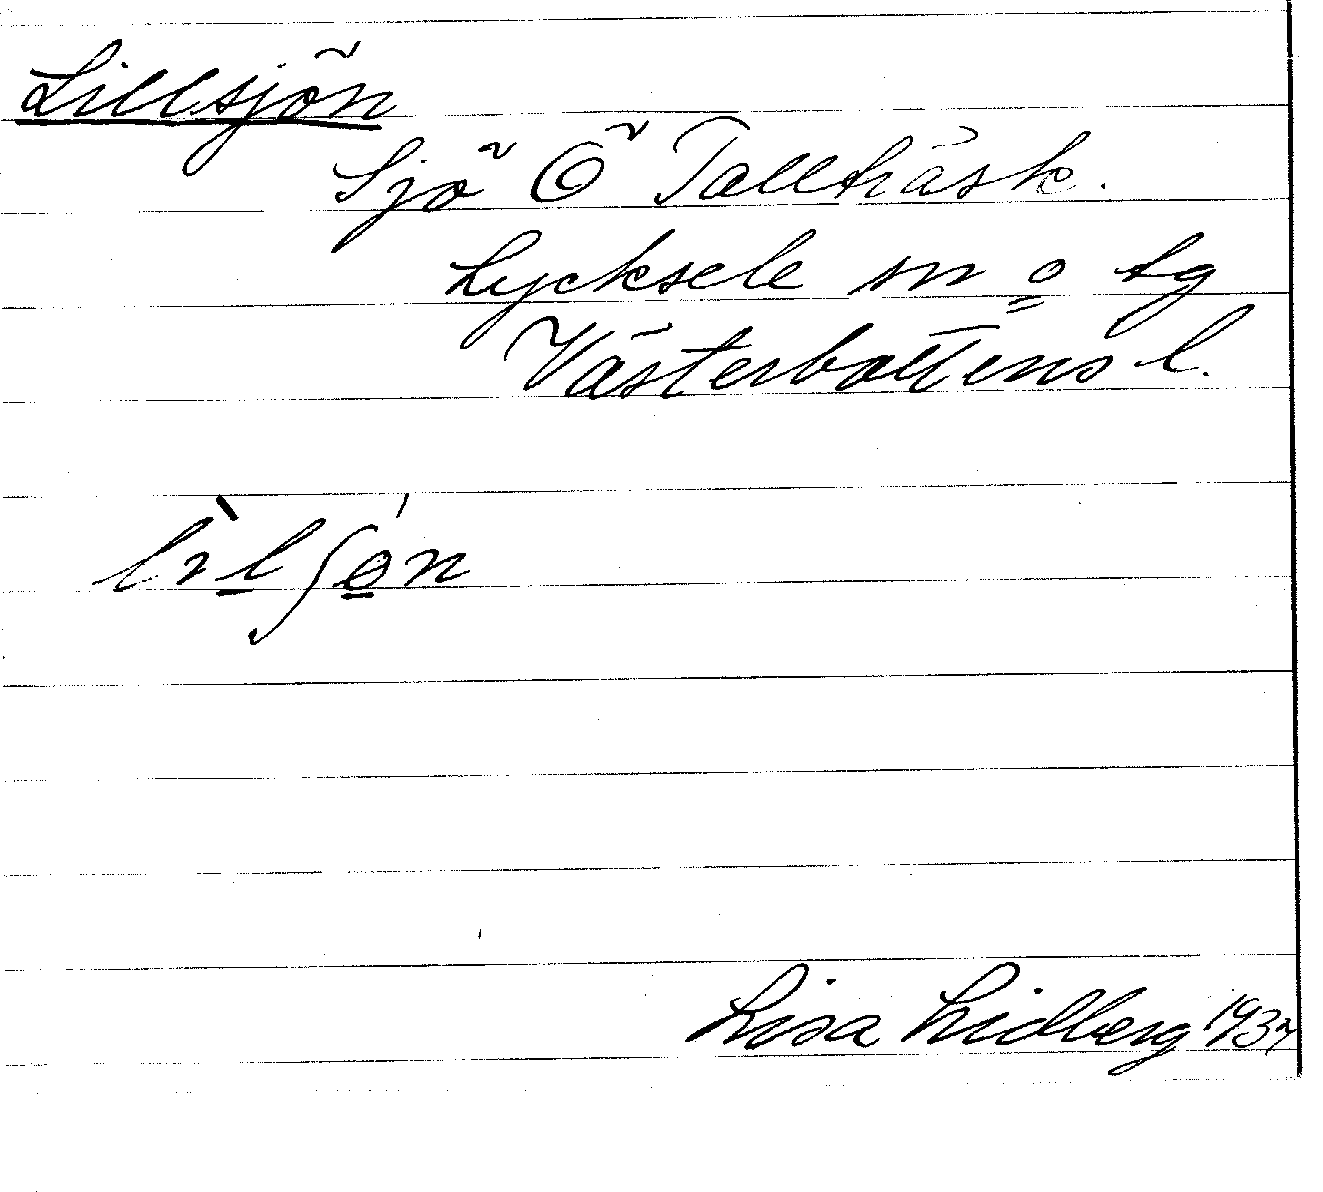 Lillsjön
Sjö Ö Tallträsk.
Lycksele sn o tg
Västerbottens l.
Lisa Lidberg 1937